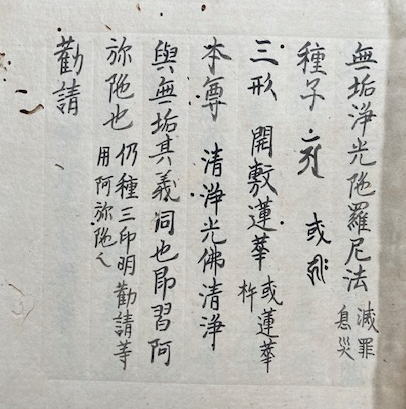 無垢淨光陁羅尼法 滅罪 息災
種子 或
三形 開敷蓮華 或蓮華 杵
本尊 清淨光佛清淨
與無垢其義同也即習阿
弥陁也 仍種三印明勸請等 用阿弥陁
勸請